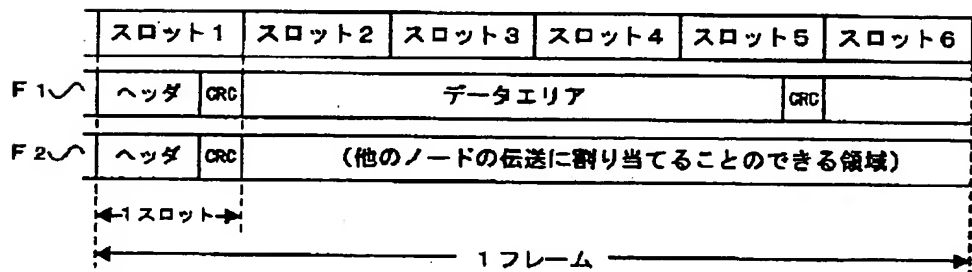 スロット1 スロット2 スロット3 スロット4 スロット5 スロット6
F1 ヘッダ CRC データエリア CRC
F2 ヘッダ CRC (他のノードの伝送に割り当てることのできる領域)
1スロット
1フレーム